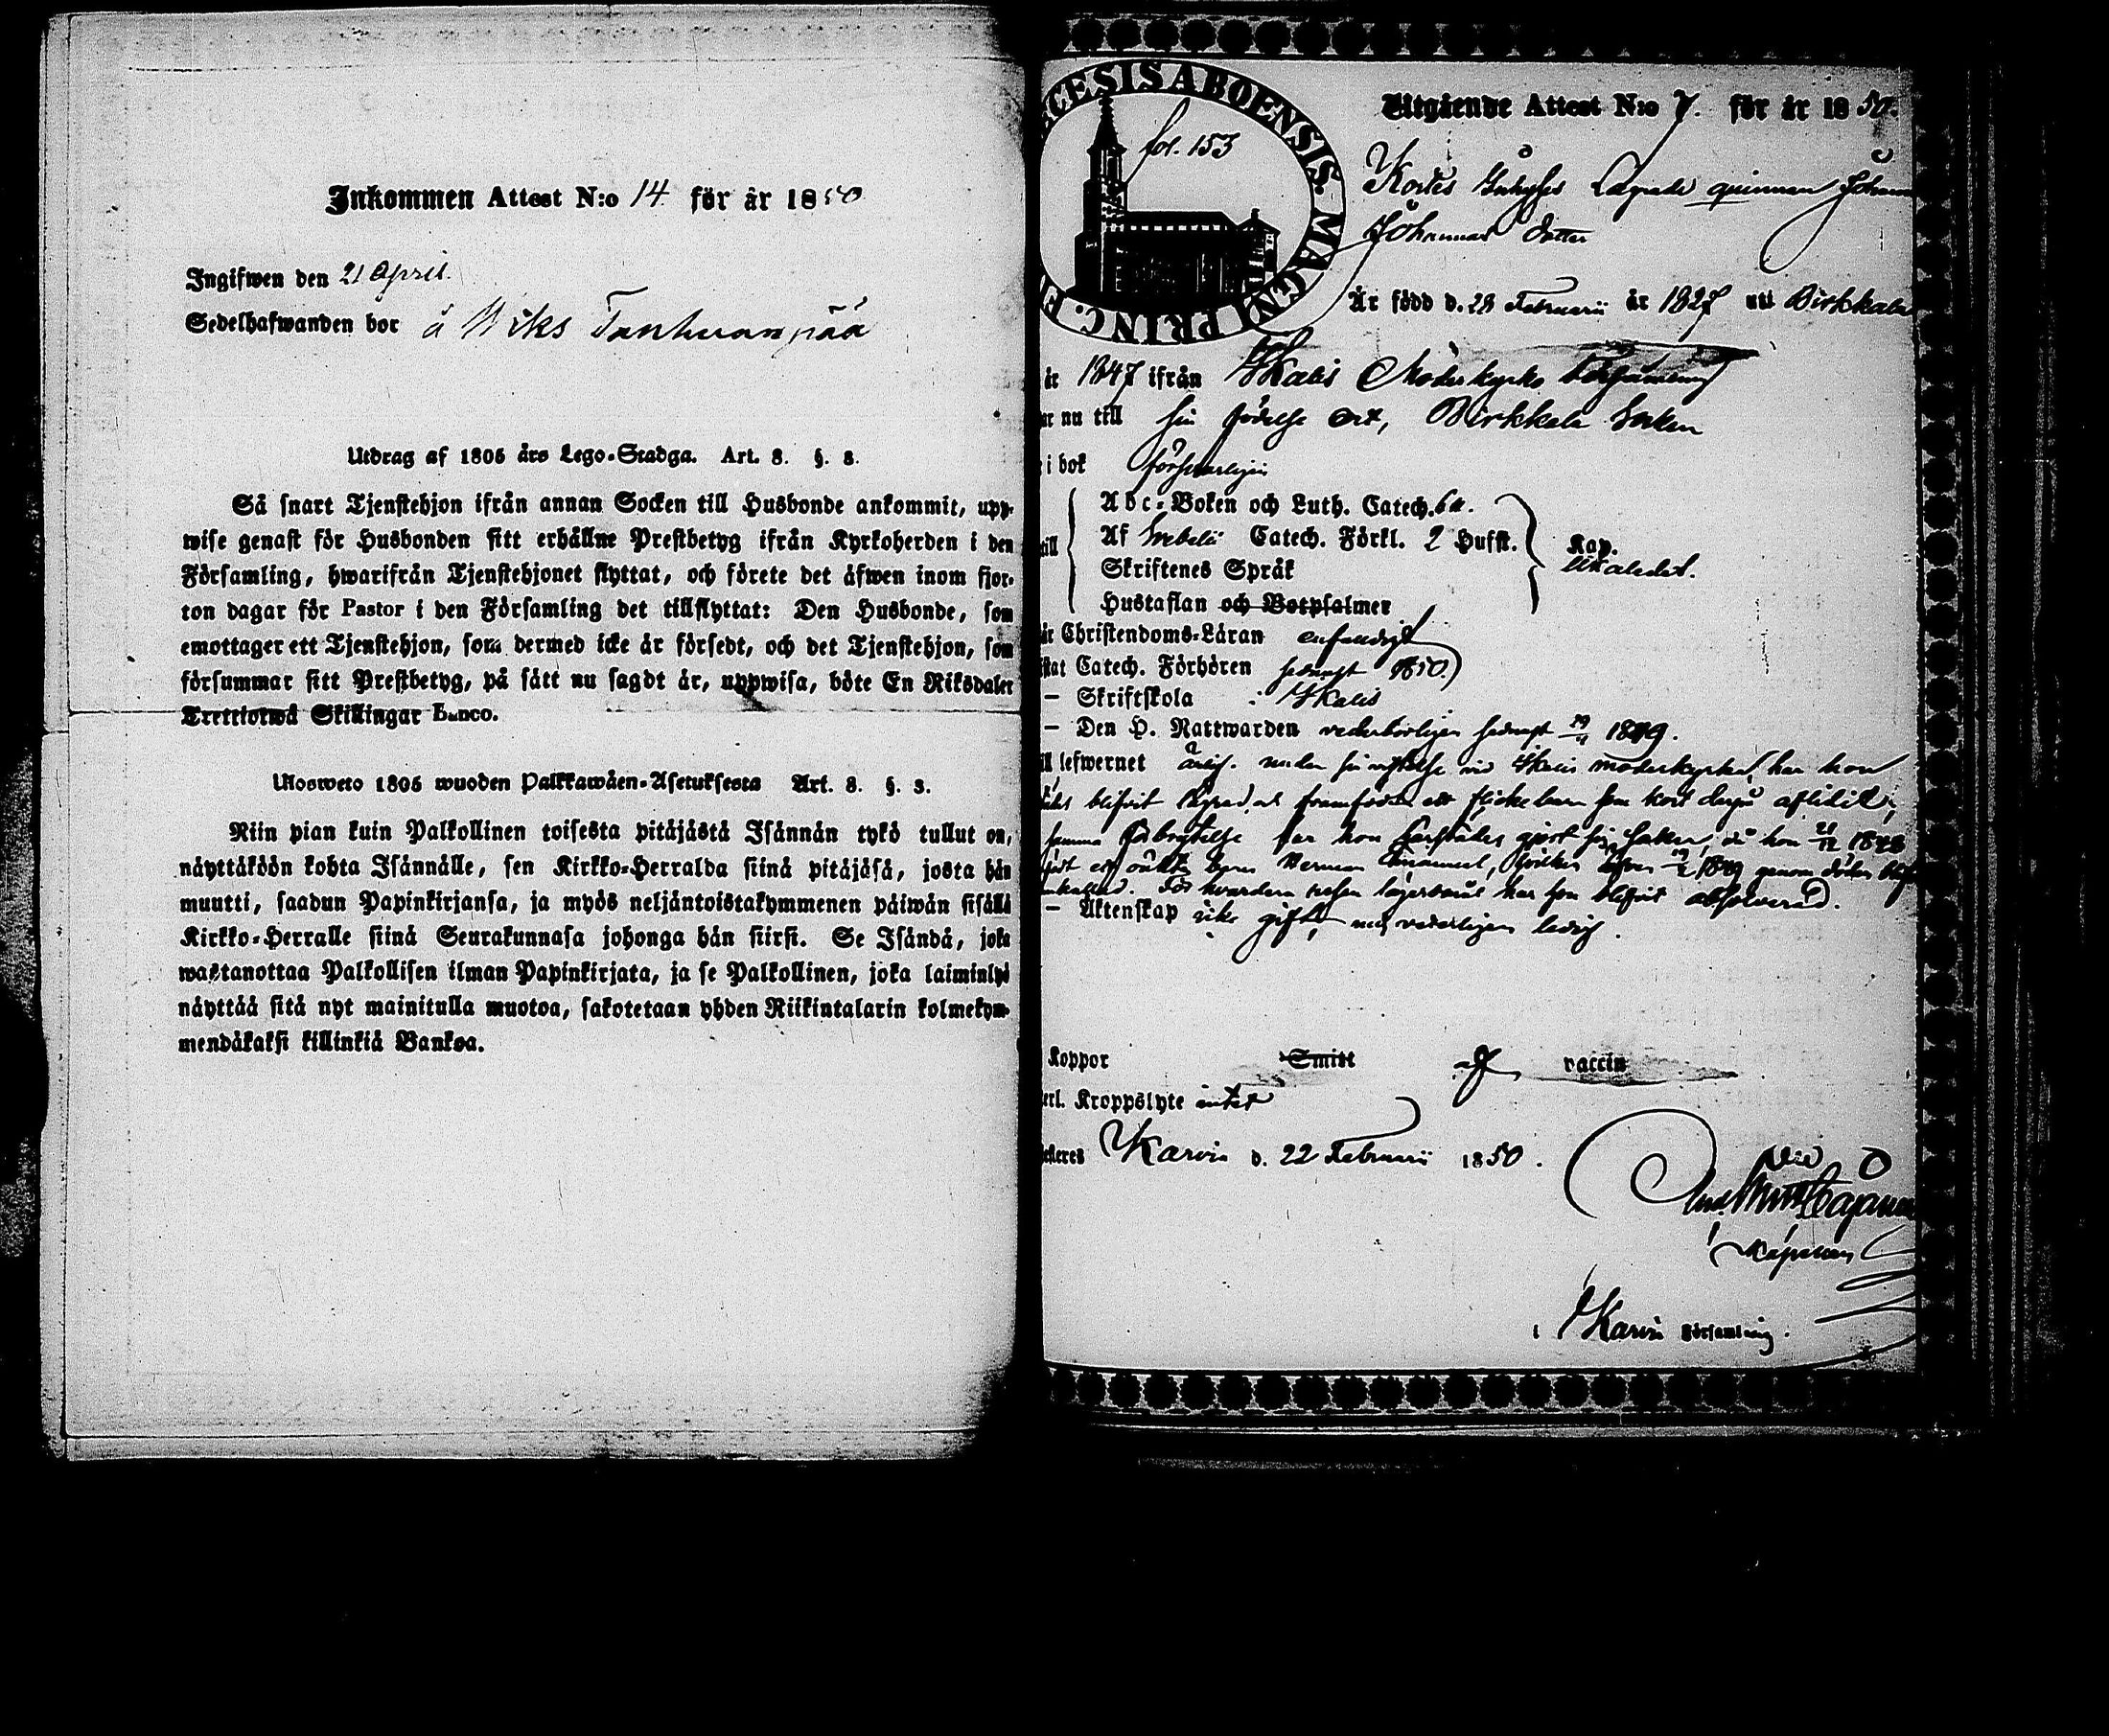 Inkommen Attest N:o 14 för år 1850
Ingifwen den 21 April.
Sedelhafwanden bor å Wiks Tanhuanpää
Utdrag af 1805 års Lego-Stadga. Art. 8. §. 8.
Så snart Tjenstehjon ifrån annan Socken till Husbonde ankommit, upp-
wise genast för Husbonden sitt erhållne Prestbetyg ifrån Kyrkoherden i den
Församling, hwarifrån Tjenstehjonet flyttat, och förete det äfwen inom fjor-
ton dagar för Pastor i den Församling det tillflyttat: Den Husbonde, som
emottager ett Tjenstehjon, som dermed icke är försedt, och det Tjenstehjon, som
försummar sitt Prestbetyg, på sätt nu sagdt är, uppwisa, böte En Riksdaler
Trettiotwå Skillingar Banco.
Ulosweto 1805 wuoden Palkkawäen-Asetuksesta Art. 8. §. 3.
Niin pian kuin Palkollinen toisesta pitäjästä Isännän tykö tullut on,
näyttäköön kohta Isännälle, sen Kirkko-Herralda siinä pitäjäsä, josta hän
muutti, saadun Papinkirjansa, ja myös neljäntoistakymmenen päiwän sisällä
Kirkko-Herralle siinä Seurakunnasa johonga hän siirsi. Se Isändä, joka
wastanottaa Palkollisen ilman Papinkirjata, ja se Palkollinen, joka laiminlyö
näyttää sitä nyt mainitulla muotoa, sakotetaan yhden Riikintalarin kolmekym-
mendäkaksi killinkiä Bankoa.
CESIS ABOENSIS. MAGNI PRINC. FI
fol. 153
Utgående Attest N:o 7. för år 1850.
Kortes Inhyses Lägrade qvinnan Johanna
Johannes dotter
Är född d. 28 Februarii år 1827 uti Birkkala
år 1847 ifrån Ikalis Moderkyrko Församling
nu till sin födelse ort, Birkkala Socken
i bok försvarligen
till
Abc-Boken och Luth. Catech. 6 a.
Af Svebelii Catech. Förkl. 2 Hufst.
Skriftenes Språk
Hustaflan och Botpsalmer
Kap.
Ikaledet.
Christendoms-Läran enfaldigt
Catech. Förhören sednast 1850.
– Skriftskola i Ikalis
– Den H. Nattwarden vederbörligen sednast 1849.
lefwernet ärlig. under sin vistelse vid Ikalis moderkyrka har hon
blifvit lägrad, at framfödt ett flickebarn som kort derpå aflidit,
samma förbrytelse har hon härstädes gjort sig saker, då hon 21/12 1848
födt ett oäkta barn Herman Emanuel, hvilken äfven 1849 genom döden
För hvardera resan lägersmål har hon blifvit absolverad.
– Äktenskap icke gift, nu vederligen ledig.
Koppor Smitt af vaccin
Kroppslyte intet
Karvia d. 22 Februarii 1850.
Kapellan
i Karvia Församling.